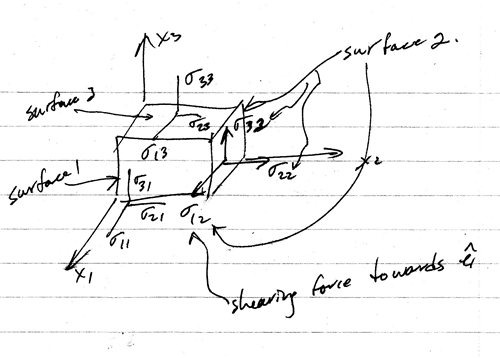 x3
surface 2.
σ33
surface 3
σ23
σ32
σ13
x2
σ22
surface 1
σ31
σ21
σ12
σ11
x1
shearing force towards ê1